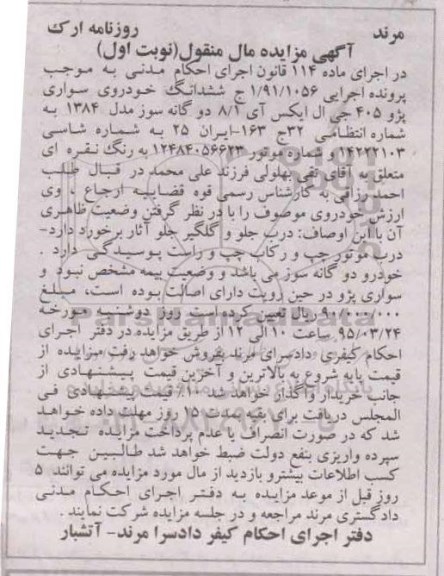 مرند
روزنامه ارک
آگهی مزایده مال منقول(نوبت اول)
در اجرای ماده ۱۱۴ قانون اجرای احکام مدنی به موجب
پرونده اجرایی ۱/۹۱/۱۰۵۶ ج ششدانگ خودروی سواری
پژو ۴۰۵ جی ال ایکس آی ۸/۱ دو گانه سوز مدل ۱۳۸۴ به
شماره انتظامی ۳۲ج ۱۶۳-ایران ۲۵ به شماره شاسی
۱۴۲۲۲۱۰۳ و شماره موتور ۱۲۴۸۴۰۵۶۶۲۳ به رنگ نقره ای
متعلق به آقای تقی بهلولی فرزند علی محمد در قبال طلب
احمد رزاقی به کارشناس رسمی قوه قضاییه ارجاع ، وی
ارزش خودروی موصوف را با در نظر گرفتن وضعیت ظاهری
آن با این اوصاف: درب جلو و گلگیر جلو آثار برخورد دارد-
درب موتور چپ و رکاب چپ و راست پوسیدگی دارد .
خودرو دو گانه سوز می باشد و وضعیت بیمه مشخص نبود و
سواری پژو در حین رویت دارای اصالت بوده است، مبلغ
۹۰/۰۰۰/۰۰۰ ریال تعیین کرده است روز دوشنبه مورخه
۹۵/۰۳/۲۴ ساعت ۱۰ الی ۱۲ از طریق مزایده در دفتر اجرای
احکام کیفری دادسرای مرند بفروش خواهد رفت مزایده از
قیمت پایه شروع به بالاترین و آخرین قیمت پیشنهادی از
جانب خریدار واگذار خواهد شد ۱۰٪ قیمت پیشنهادی فی
المجلس دریافت برای بقیه بمدت ۱۵ روز مهلت داده خواهد
شد که در صورت انصراف یا عدم پرداخت مزایده تجدید
سپرده واریزی بنفع دولت ضبط خواهد شد طالبین جهت
کسب اطلاعات بیشترو بازدید از مال مورد مزایده می توانند ۵
روز قبل از موعد مزایده به دفتر اجرای احکام مدنی
دادگستری مرند مراجعه و در جلسه مزایده شرکت نمایند .
دفتر اجرای احکام کیفر دادسرا مرند- آتشبار